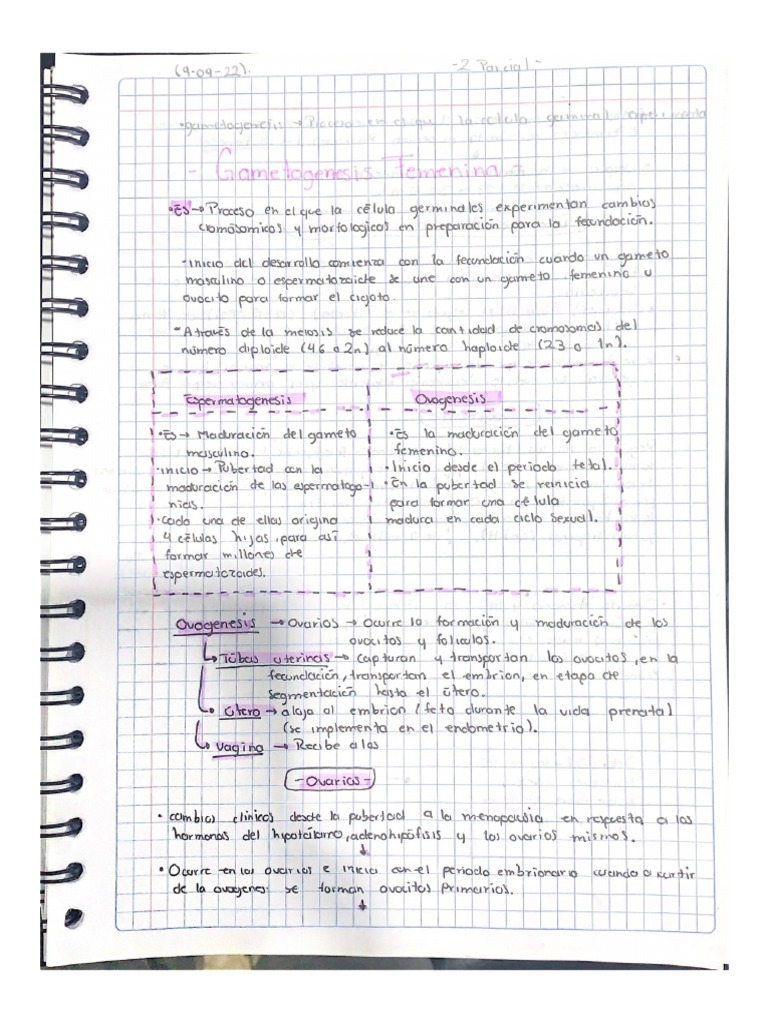 (9-09-22).
-2 Parcial-
•gametogenesis → Proceso en el que la celula germinal
- Gametogenesis Femenina -
•Es → Proceso en el que la célula germinales experimentan cambios
cromosomicos y morfologicos en preparación para la fecundación.
-Inicio del desarrollo comienza con la fecundación cuando un gameto
masculino o espermatozoide se une con un gameto femenino u
ovocito para formar el cigoto.
-A través de la meiosis se reduce la cantidad de cromosomas del
número diploide (46 o 2n) al número haploide (23 o 1n).
Espermatogenesis
•Es → Maduración del gameto
masculino.
•Inicio → Pubertad con la
maduración de las espermatogo-
nias.
•Cada una de ellas origina
4 células hijas, para así
formar millones de
espermatozoides.
Ovogenesis
•Es la maduración del gameto
femenino.
•Inicio desde el periodo fetal.
•En la pubertad se reinicia
para formar una célula
madura en cada ciclo sexual.
Ovogenesis → Ovarios → Ocurre la formación y maduración de los
ovocitos y foliculos.
↳ Tubas uterinas → Capturan y transportan los ovocitos, en la
fecundación, transportan el embrion, en etapa de
segmentación hasta el útero.
↳ Útero → aloja al embrion/feto durante la vida prenatal
(se implementa en el endometrio).
↳ Vagina → Recibe a los
-Ovarios-
• cambios clinicos desde la pubertad a la menopausia en respuesta a las
hormonas del hipotálamo, adenohipófisis y los ovarios mismos.
↓
• Ocurre en los ovarios e inicia con el periodo embrionario cuando a partir
de la ovogenesi se forman ovocitos Primarios.
↓